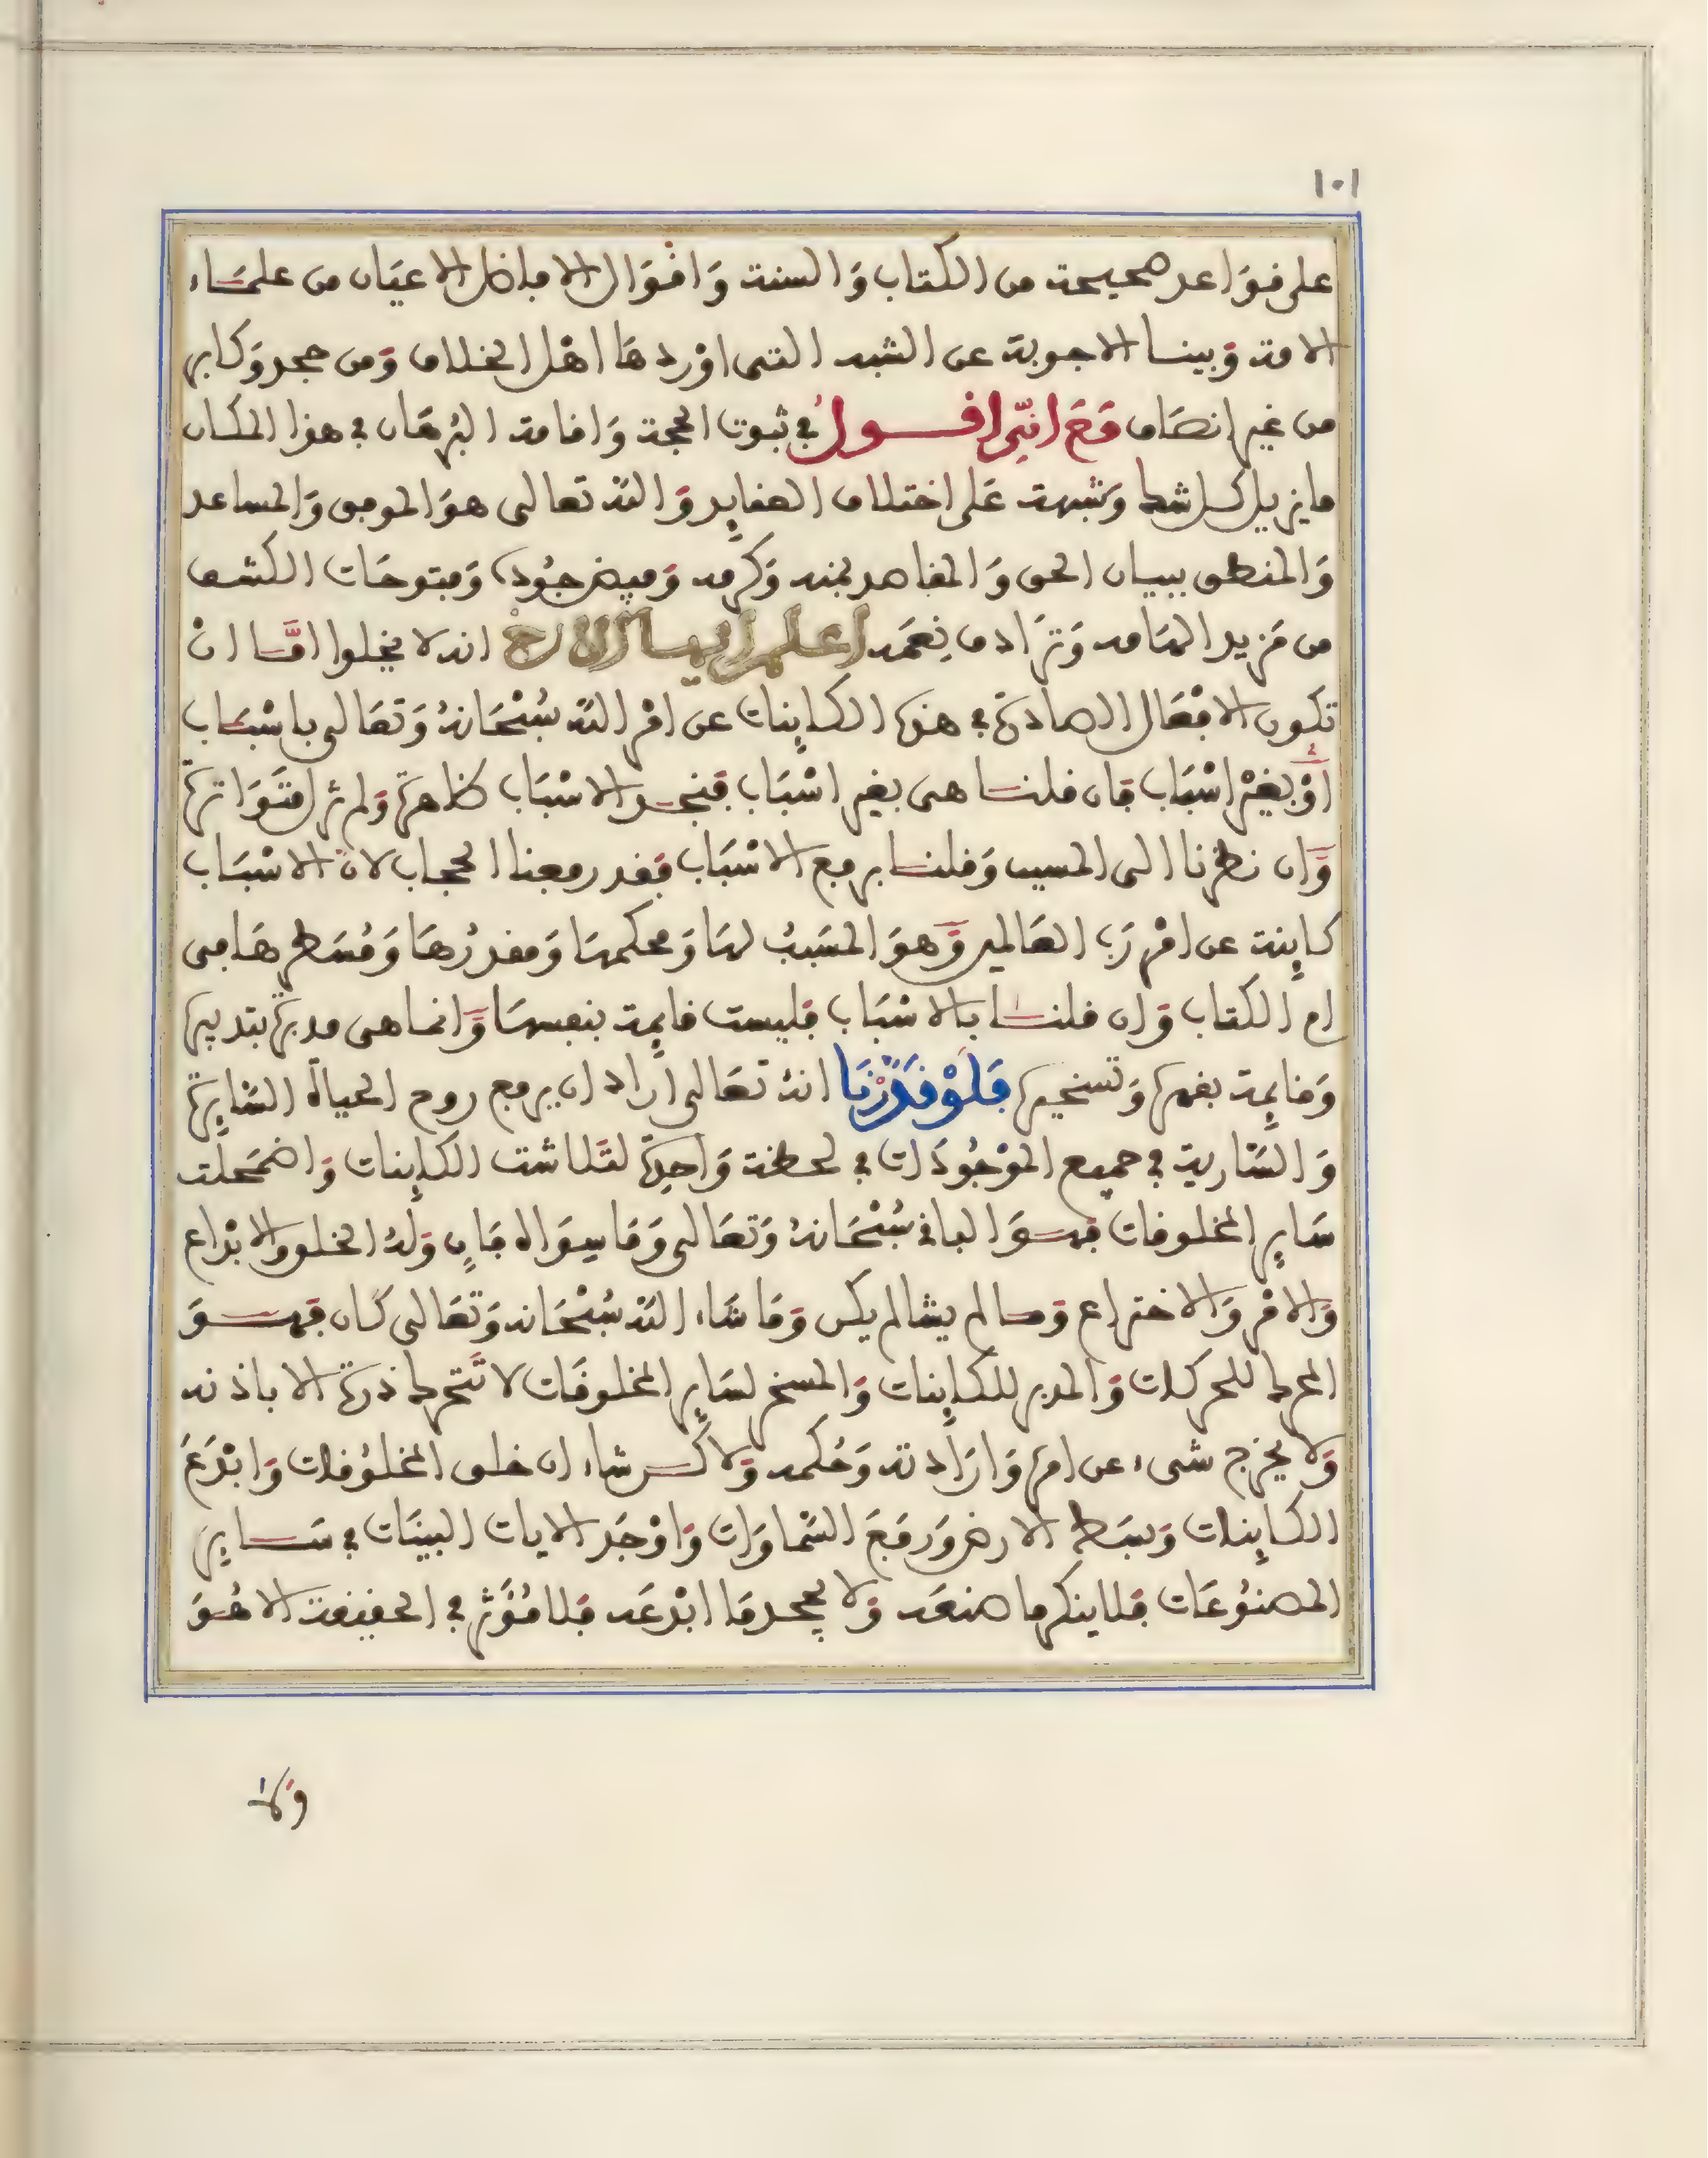 ١٠١
على قوَاعد صحيحة من الكتاب وَالسنة وَاقْوَال الافاضل الاعيَان من علمَاء
الامة وَبينا الاجوبة عن الشبه التى اوْردهَا اهْل الخلاف وَمن جحد وَكابر
من غير انصَاف مَعَ انِّى اقول في ثبوت الحجة وَاقامة البُرهَان في هذا المكان
ما يزيل كل شك وَشبهة عَلى اختلاف العقايد وَالله تعالى هوَ الموفق وَالمساعد
وَالمنطق ببيان الحق وَالمقاصد بمنه وَكرمه وَفيض جُوده وَفتوحَات الكشف
من مَزيد الهَامه وَترَادف نِعَمه اعلم ايها الاخ انه لا يخلوا امَّا انْ
تكون الافْعَال الصادرة في هذه الكاينات عن امْر الله سُبْحَانهُ وَتعَالى باسْبَاب
اوْ بغيْر اسْبَاب فان قلنا هى بغير اسْبَاب فَنجد الاسْبَاب ظاهرة وَلم تزل متَوَاترة
وَان نظرْنا الى المسبب وَقلنا برفع الاسْبَاب فَقد رفعنا الحجاب لانّ الاسْبَاب
كاينة عن امْر رَب العَالمين وَهوَ المسَببُ لهَا وَمحكمهَا وَمقدرُهَا وَمُسَطرهَا فى
ام الكتاب وَان قلنا بالاسْبَاب فَليست قايمة بنفسهَا وَانما هى مدبرة بتدبيره
وَقايمة بقهره وَتسخيره فَلَوْ قَدَّرْنَا انهُ تعَالى ارَاد ان يرفع روح الحياة السَّايرة
وَالسَّارية في جميع الموْجُودَات في لحظة وَاحدة لتَلاشت الكاينات وَاضمَحلت
سَاير المخلوقات فهوَ الباقي سُبْحَانهُ وَتعَالى وَمَا سِوَاه فَانٍ وَلهُ الخلق وَالابْداع
وَالامْر وَالاختراع وَما لم يشا لم يكن وَمَا شَاء الله سُبْحَانه وَتعَالى كان فَهوَ
المحرك للحركات وَالمدبر للكاينات وَالمسخر لسَاير المخلوقَات لا تَتحرك ذرة الا باذنه
وَلا يخرج شىء عن امره وَارَادته وَحُكمه وَلاكن شاء ان خلق المخلوُقات وَابْدَعَ
الكاينات وَبسَط الارض وَرفَعَ السَّماوَات وَاوْجَد الايات البينَات في سَاير
المصنُوعَات فَلا ينكر ما صنعَه وَلا يجحد مَا ابْدعَه فَلا مُؤثر في الحقيقة الا هُوَ
وَلا